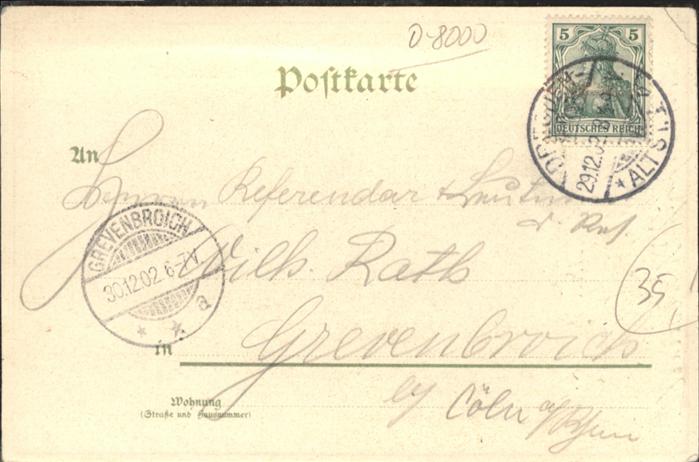 D-8000
5 5
DEUTSCHES REICH
29.12.02. 8
* ALTST. 1.
Postkarte
An
Herrn Referendar & Leutn.
d. Res.
Wilh. Rath
GREVENBROICH
30.12.02. 6-7V.
* * a
35
in Grevenbroich
by Cöln a/Rhein
Wohnung
(Straße und Hausnummer)